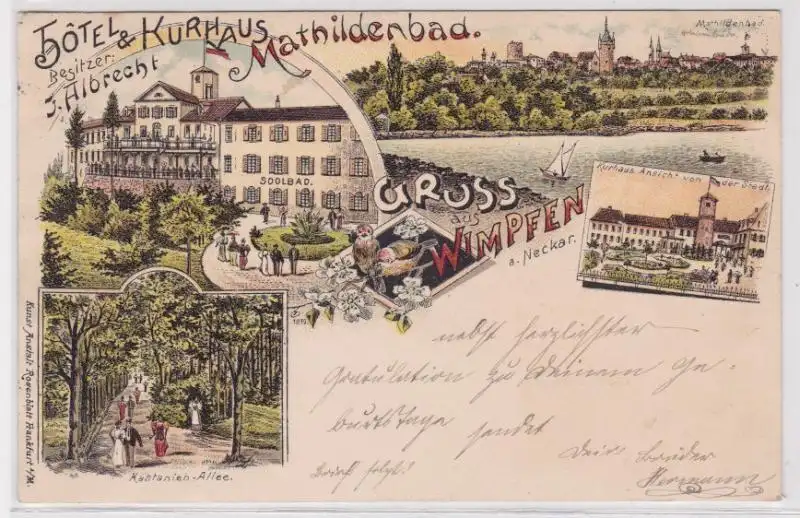 HÔTEL & KURHAUS
Mathildenbad.
Besitzer:
J. Albrecht
Mathildenbad.
SOOLBAD.
GRUSS
aus
WIMPFEN
a. Neckar.
Kurhaus Ansicht von der Stadt.
Kastanien-Allee.
Kunst Anstalt Rosenblatt Frankfurt a/M.
nebst herzlichster
Gratulation zu Deinem Ge-
burtstage sendet
Dein Bruder
Brief folgt!
Hermann